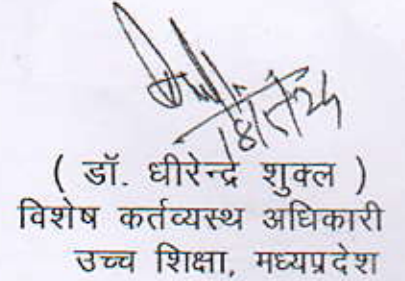 ( डॉ. धीरेन्द्र शुक्ल )
विशेष कर्तव्यस्थ अधिकारी
उच्च शिक्षा, मध्यप्रदेश